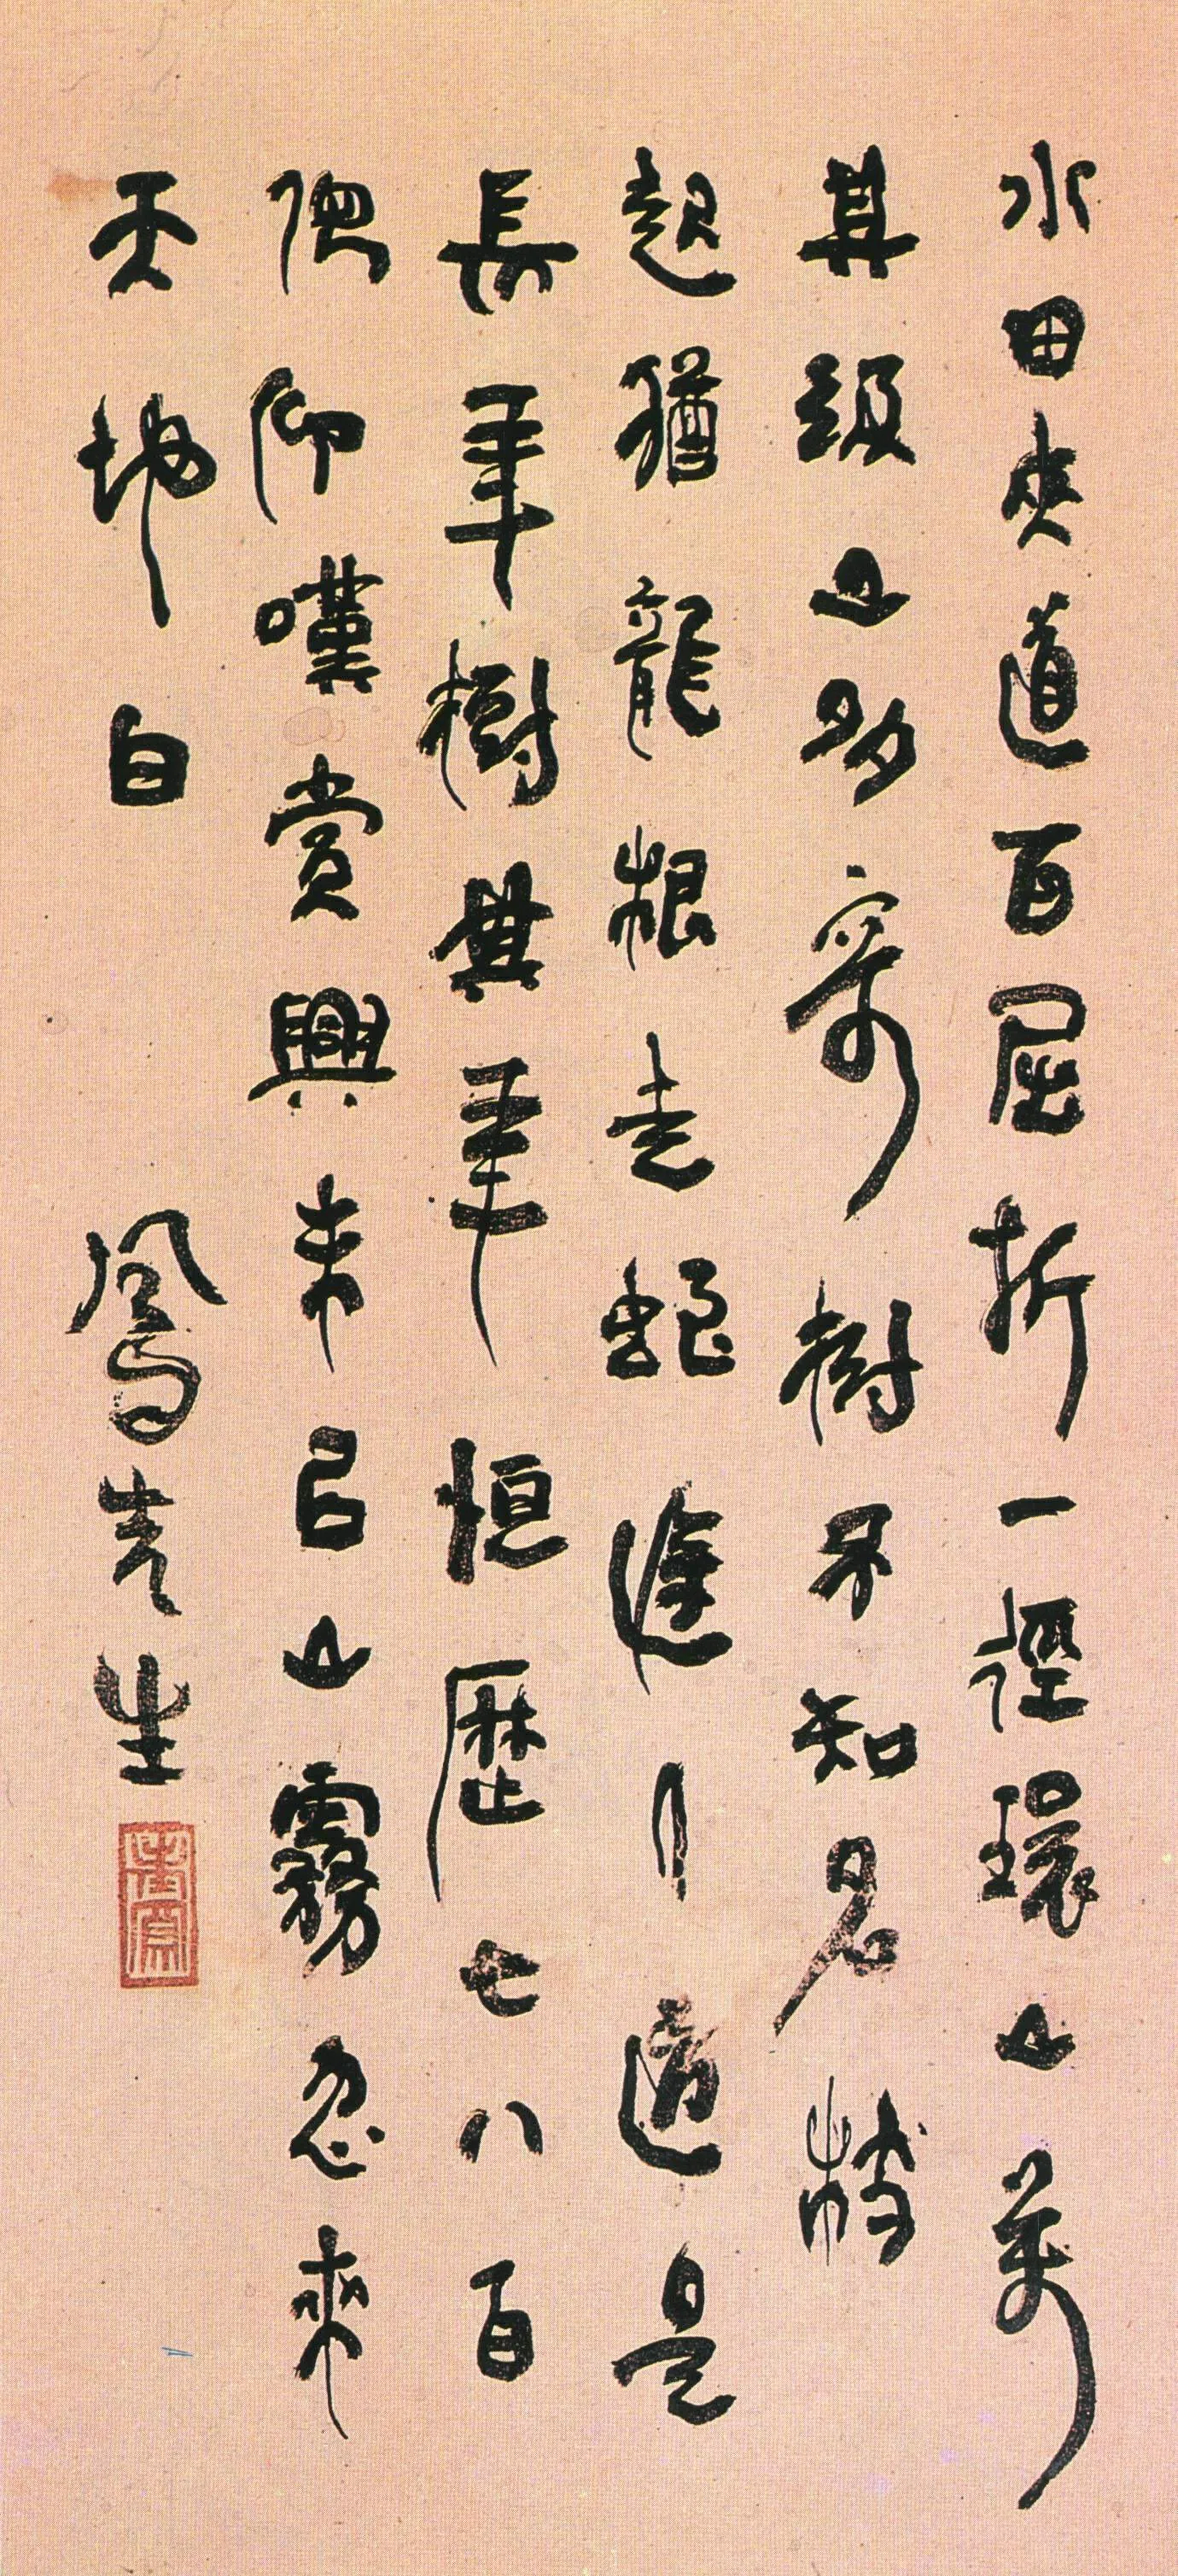 水田夾道百屈折一徑環山萬
其級山多奇樹不知名枝
起猶龍根走道是
長年樹其年恒歷七八百
俛仰嘆賞興未已山霧忽來
天地白 鳳先生